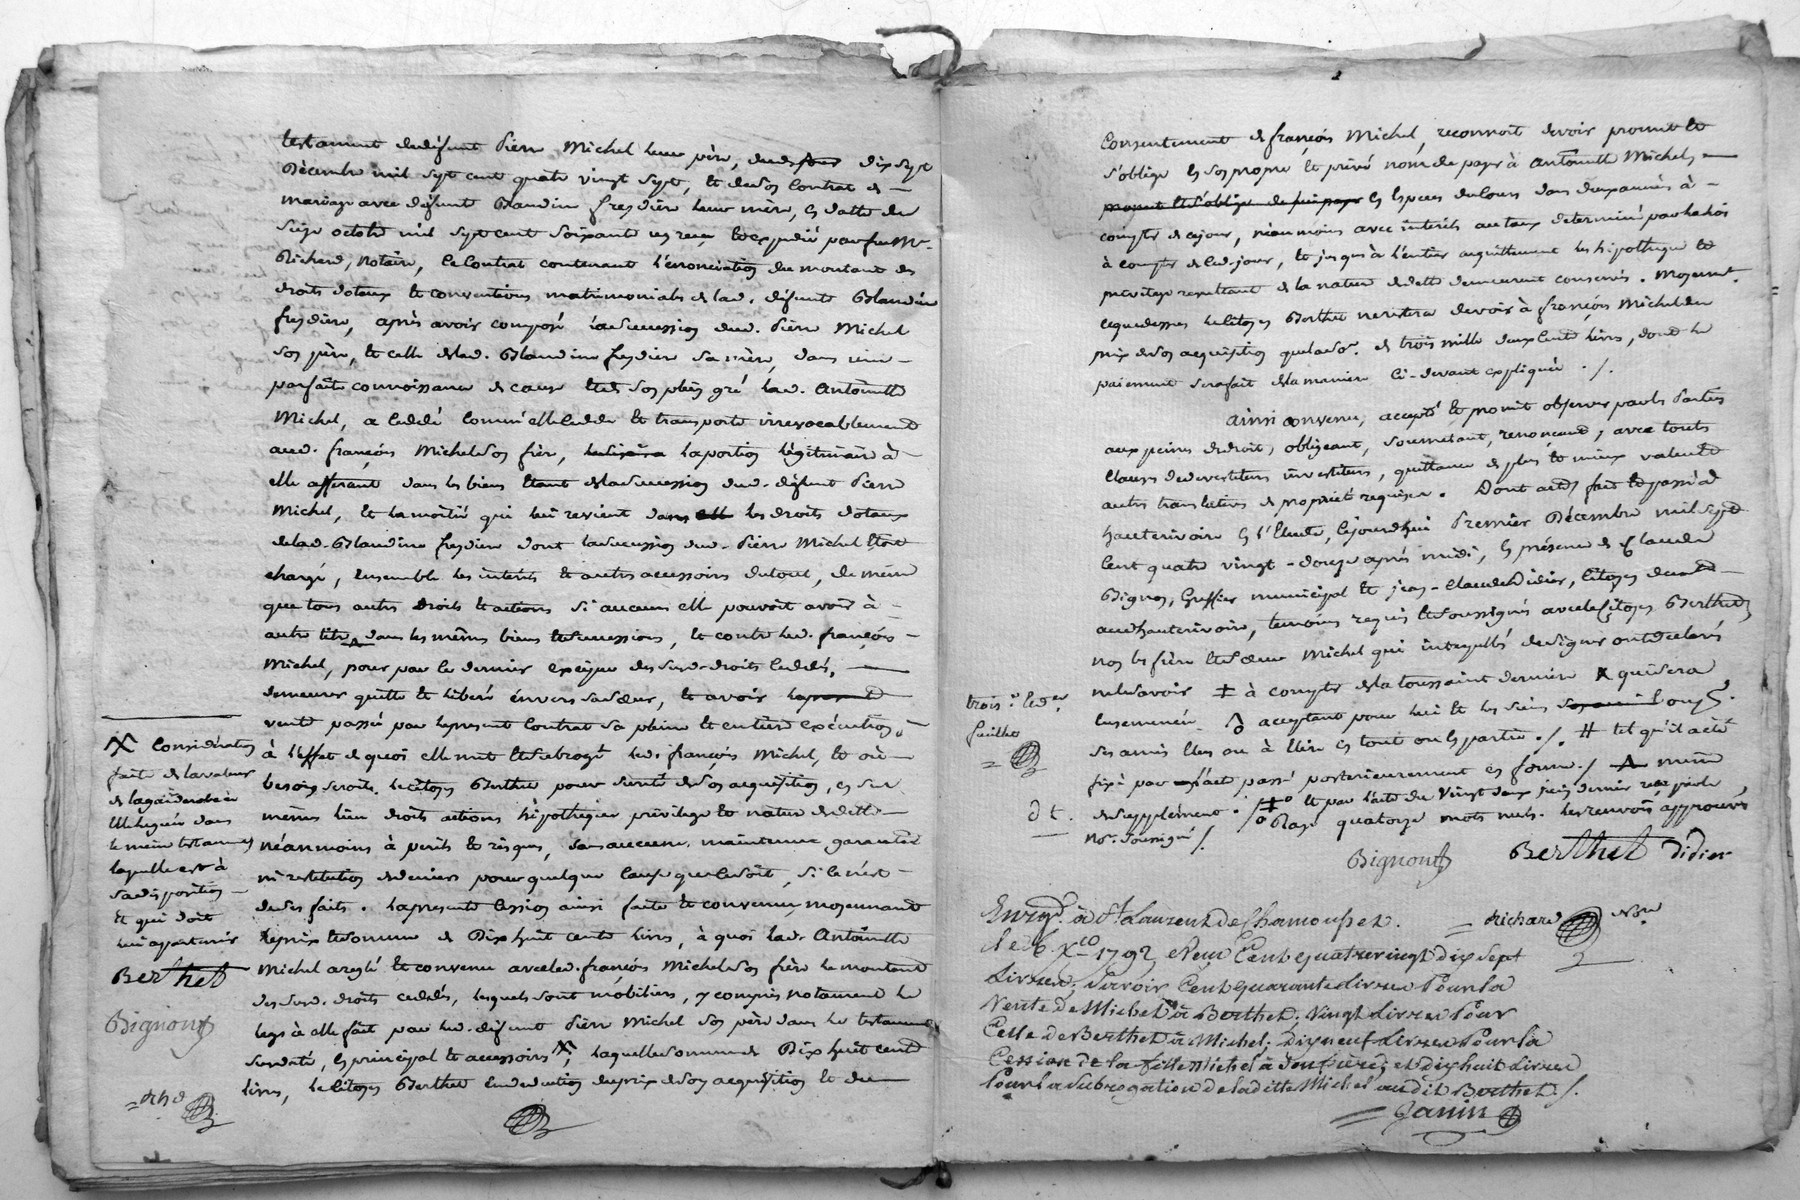 testament dudéfunt Pierre Michel leur père, du dix sept
Décembre mil sept cent quatre vingt sept, et de son Contrat de
mariage avec défunt Blandine freydière leur mère, en datte du
seize octobre mil sept cent soixante un reçu et expédié par feu Me.
Richard, Notaire, le Contrat contenant l'énonciation du montant des
droits dotaux et conventions matrimoniales de lad. défunte Blandine
freydière, après avoir composé la succession dud. Pierre Michel
son père, et celle de lad. Blandine freydière sa mère, dans une
parfaite connoissance de cause et de son plein gré lad. Antoinette
Michel, a cédé comm'elle cedde et transporte irrévocablement
aud. françois Michel son frère, la portion légitimaire à
elle afférant dans les biens étant de la succession dud. défunt Pierre
Michel, et la moitié qui lui revient dans les droits dotaux
de lad. Blandine freydière dont la succession dud. Pierre Michel étoit
chargé, ensemble les intérêts et autres accessoirs du tout, de même
que tous autres droits et actions si aucuns elle pouvoit avoir à
autre titre dans les mêmes biens et successions, et contre led. françois
Michel, pour par ce dernier exéquer des susd. droits ceddés,
demeurer quitte et libéré envers sa sœur, et avoir
vente passée par le présent Contrat sa pleine et entière exécution,
à l'effet de quoi elle met et subroge led. françois Michel, et où
besoin seroit, le Citoyen Berthet pour sûreté de son acquisition, en ses
mêmes lieu droits actions hipothèque privilège et nature de dette
néanmoins à périls et risques, sans aucune maintenue garantie
ni restitution de deniers pour quelque cause que ce soit, si ce n'est
de ses faits. la présente Cession ainsi faite et convenue, moyennant
le prix et somme de Dix huit cents livres, à quoi lad. Antoinette
Michel a réglé et convenu avec led. françois Michel son frère le montant
des susd. droits ceddés, lesquels sont mobiliers, y compris notament le
legs à elle fait par led. défunt Pierre Michel son père dans le testament
susdaté, en principal et accessoirs X, laquelle somme de Dix huit cents
livres, le Citoyen Berthet en déduction du prix de son acquisition et du
X Considération
faite de la valeur
de la garderobe à
elle léguée dans
le même testament
laquelle est à
sa disposition
et qui doit
lui appartenir
Berthet
Bignon
Consentement de françois Michel, reconnoit devoir promet et
s'oblige en son propre et privé nom de payer à Antoinette Michel,
en espèces du cours dans deux années à
compter de ce jour, néanmoins avec intérêts au taux déterminé par la loi
à compter de ced. jour, et jusqu'à l'entier acquittement les hipothèque et
privilège resultant de la nature de dette demeurant conservés. Moyennt.
ce que dessus le Citoyen Berthet ne restera devoir à françois Michel du
prix de son acquisition que la so. de trois mille deux cents livres, dont le
paiement sera fait de la manière ci-devant expliquée ./.
Ainsi convenu, accepté et promit observer par les Parties
aux peines de droit, obligeant, soumetant, renonçant, avec toutes
clauses de devestiture investiture, quittance de plus et mieux valeur et
autres translatives de propriété requises. Dont acte, fait et passé à
hauterivoire en l'Etude, cejourdhui Premier Décembre mil sept
Cent quatre vingt-douze après midi, en présence de Claude
Bignon, Greffier municipal et jean-Claude Didier, Citoyen
aud hauterivoire, temoins requis et soussignés avec le Citoyen Berthet,
non les frère et sœur Michel qui interpellés de signer ont déclaré
ne le savoir ‡ à compter de la toussaint dernière X qui sera
ensemencée accptant pour lui et les siens
ses amis élus ou à élire en tout ou en partie ./. # tel qu'il a été
fixé par acte passé postérieurement en forme ./ même
de supplément. et par l'acte du Vingt deux juin dernier reçu par le
No. soussigné /. Rayé quatorze mots nuls. les renvois approuvés
trois.e led.er
feuillet
dt.
Bignon
Berthet
Didier
Richard Nore
Enregé. à St. Laurent de Chamousset.
le 6. Xbre 1792, Reçu Cent quatrevingt dix sept
Livres, Savoir Cent quarante Livres Pour la
Vente de Michel à Berthet; Vingt Livres Pour
Celle de Berthet à Michel; Dixneuf Livres Pour la
Cession de la fille Michel à son frère; et dixhuit Livres
Pour la Subrogation de la ditte Michel au dit Berthet ./.
Janin